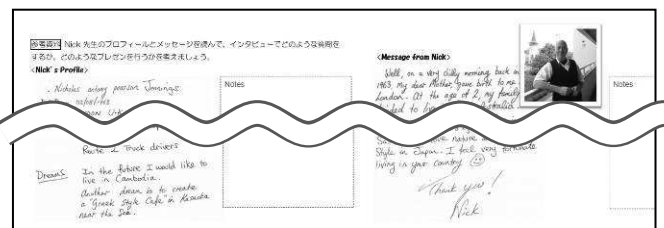 参考資料 Nick 先生のプロフィールとメッセージを読んで、インタビューでどのような質問を
するか、どのようなプレゼンを行うかを考えましょう。
<Nick's Profile>
Nicholas antony pearson Jennings
Notes
Route 1 Truck drivers
Dreams In the future I would like to
live in Cambodia.
Another dream is to create
a "Greek Style Cafe" in
near the Sea.
<Message from Nick>
Well, on a very chilly morning back in
1963, my dear Mother, gave birth to me
London. At the age of 2, my family
to
nature
Style in Japan. I feel very fortunate
living in your country
Thank you!
Nick
Notes